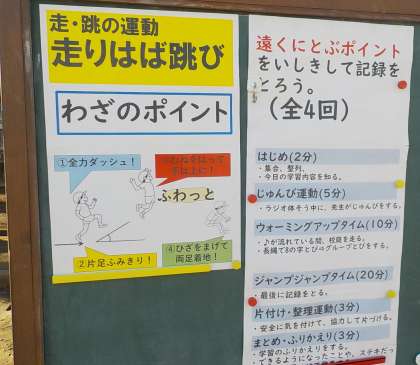 走・跳の運動
走りはば跳び
わざのポイント
①全力ダッシュ！
③むねをはって
手は上に！
ふわっと
②片足ふみきり！
④ひざをまげて
両足着地！
遠くにとぶポイント
をいしきして記録を
とろう。
（全4回）
はじめ(2分)
・集合、整列。
・今日の学習内容を知る。
じゅんび運動(5分)
・ラジオ体そう中に、先生がじゅんびをする。
ウォーミングアップタイム(10分)
・♪が流れている間、校庭を走る。
・長縄で8の字とび⇒グループとびをする。
ジャンプジャンプタイム(20分)
・最後に記録をとる。
片付け・整理運動(3分)
・安全に気を付けて、協力して片づける。
まとめ・ふりかえり(3分)
・学習のふりかえりをする。
できるようになったことや、ステキだっ